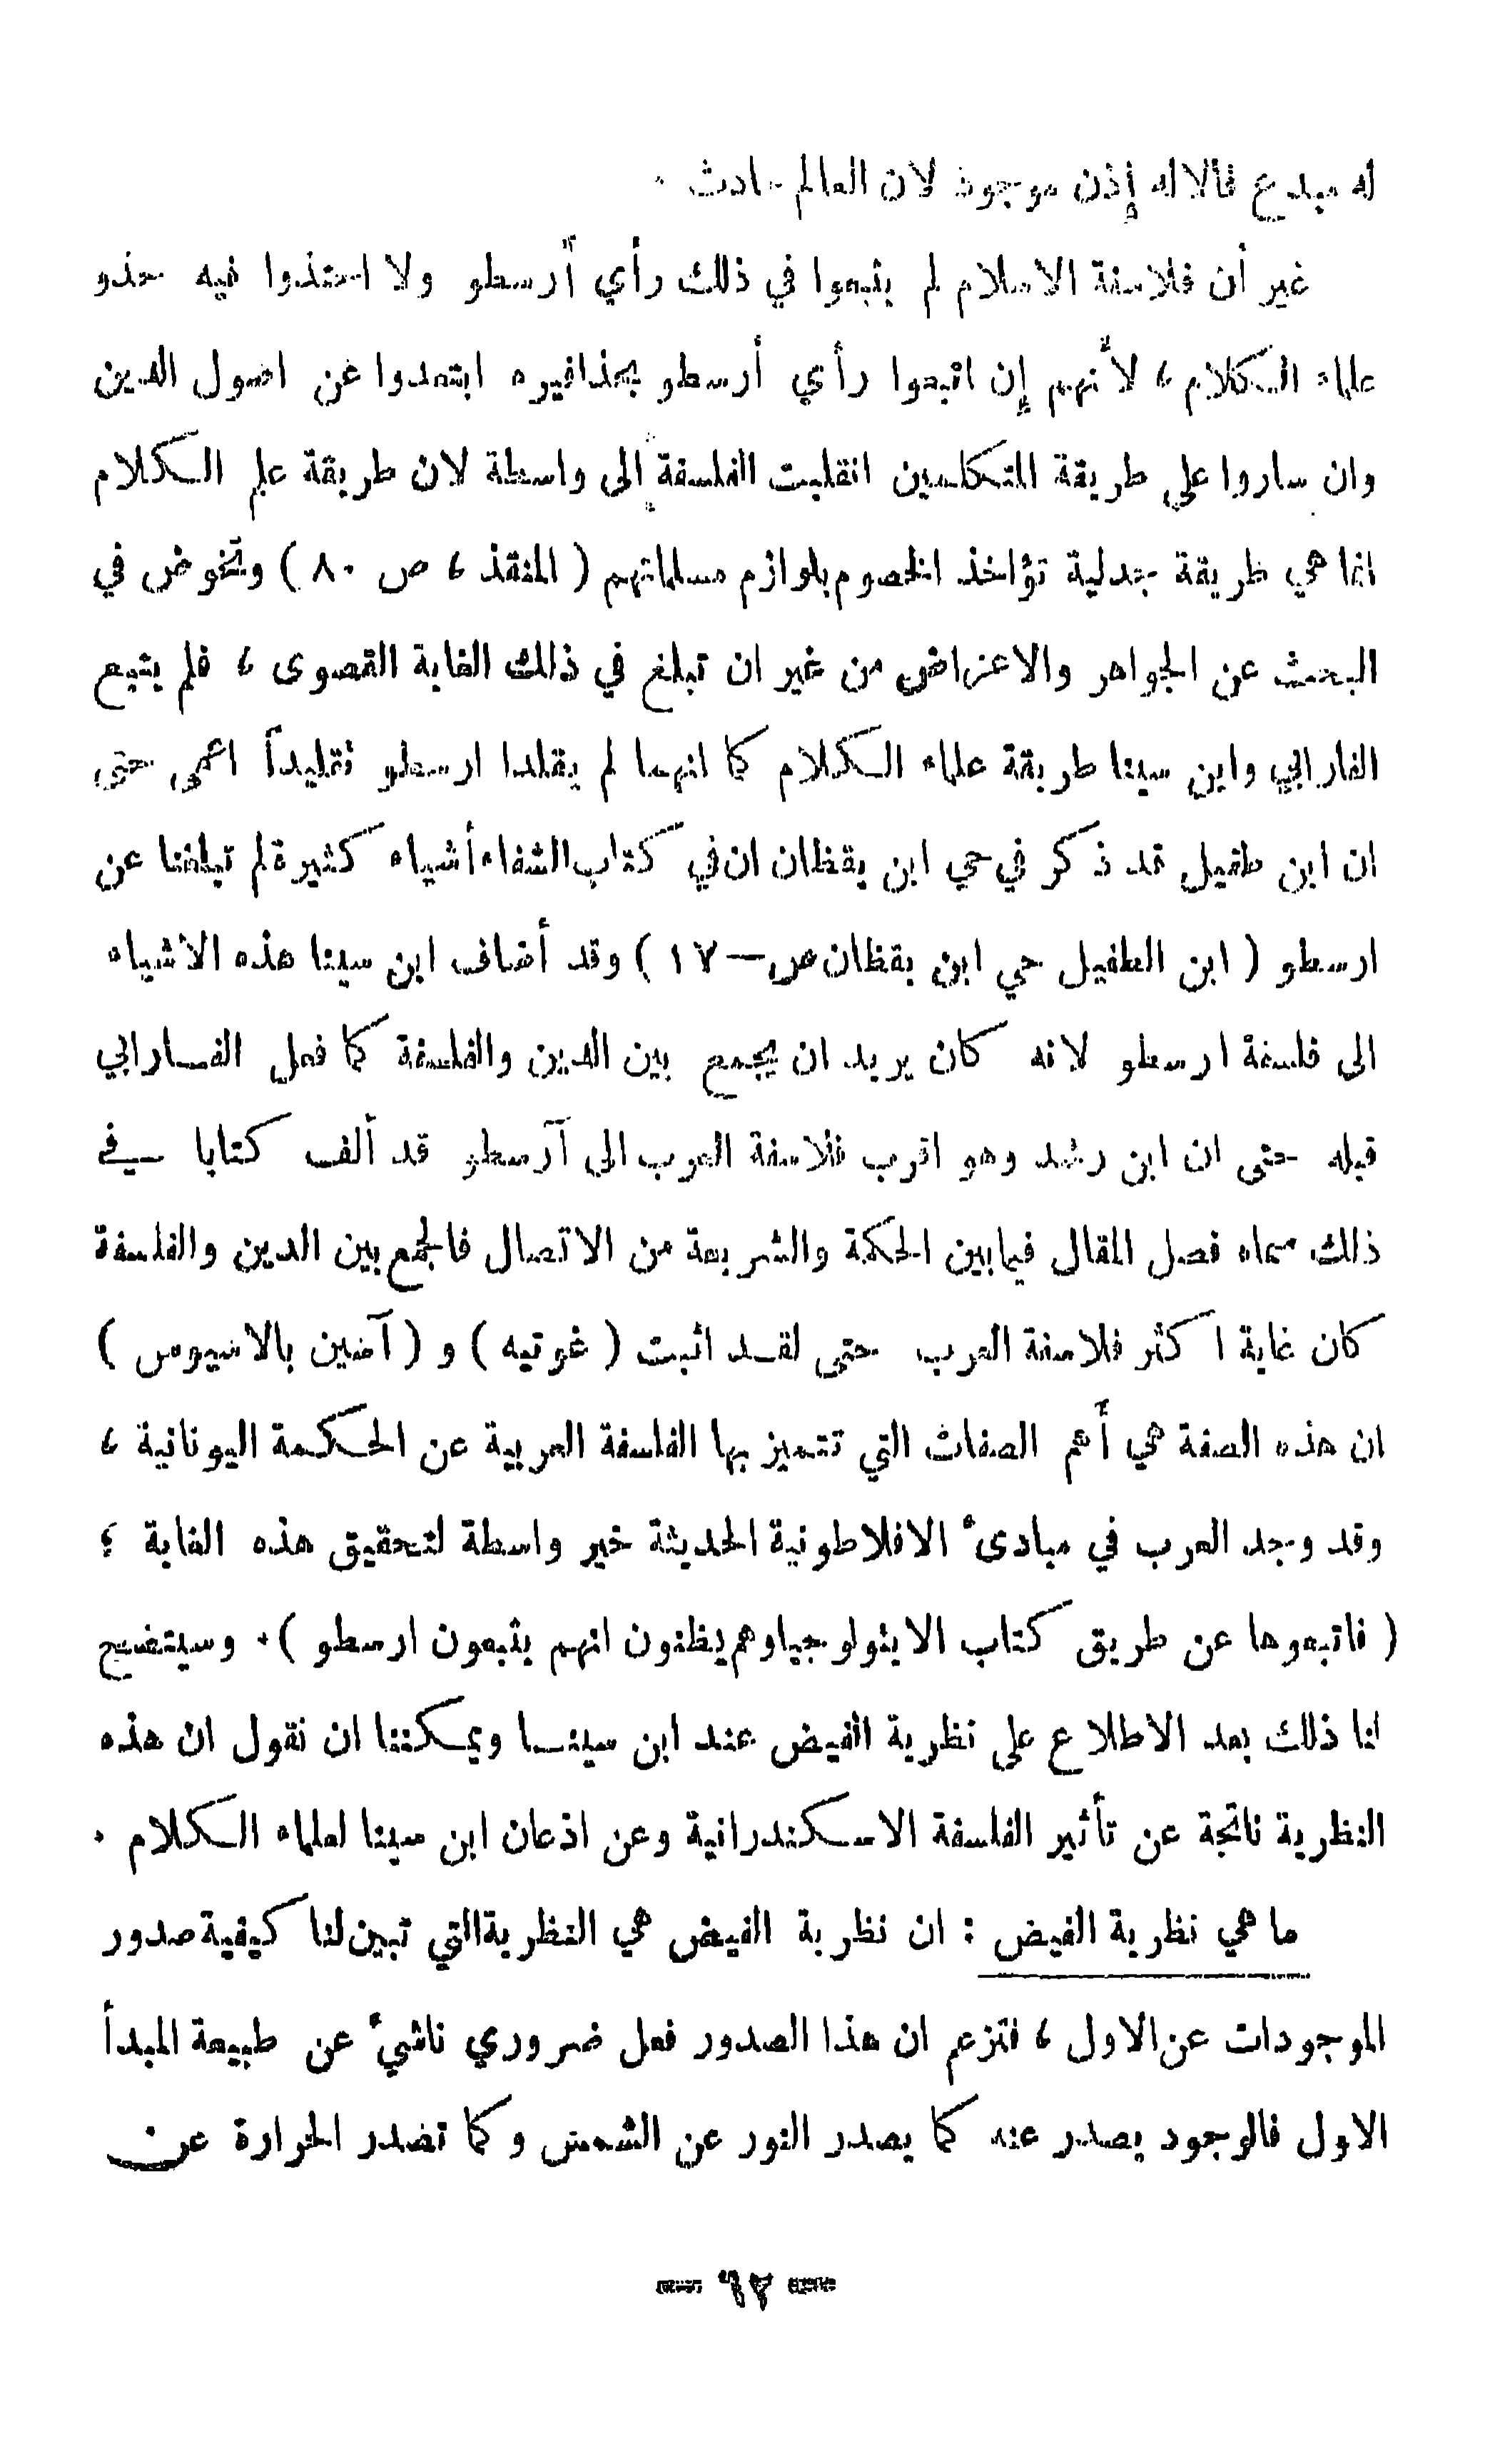 له مبدع فالاله إذن موجود لان العالم حادث .
غير أن فلاسفة الاسلام لم يتبعوا في ذلك رأي أرسطو ولا احتذوا فيه حذو
علماء الكلام ، لأنهم إن اتبعوا رأي أرسطو بحذافيره ابتعدوا عن اصول الدين
وان ساروا على طريقة المتكلمين انقلبت الفلسفة إلى واسطة لان طريقة علم الكلام
انما هي طريقة جدلية تؤاخذ الخصوم بلوازم مسلماتهم ( المنقذ ، ص ٨٠ ) وتخوض في
البحث عن الجواهر والاعراض من غير ان تبلغ في ذلك الغاية القصوى ، فلم يتبع
الفارابي وابن سينا طريقة علماء الكلام كما انهما لم يقلدا ارسطو تقليداً اعمى حتى
ان ابن طفيل قد ذكر في حي ابن يقظان ان في كتاب الشفاء أشياء كثيرة لم تبلغنا عن
ارسطو ( ابن الطفيل حي ابن يقظان ص — ١٧ ) وقد أضاف ابن سينا هذه الاشياء
الى فلسفة ارسطو لانه كان يريد ان يجمع بين الدين والفلسفة كما فعل الفارابي
قبله حتى ان ابن رشد وهو اقرب فلاسفة العرب الى آرسطو قد ألف كتابا في
ذلك سماه فصل المقال فيما بين الحكمة والشريعة من الاتصال فالجمع بين الدين والفلسفة
كان غاية اكثر فلاسفة العرب حتى لقد اثبت ( غوتيه ) و ( آسين بالاسيوس )
ان هذه الصفة هي أهم الصفات التي تتميز بها الفلسفة العربية عن الحكمة اليونانية ،
وقد وجد العرب في مبادىء الافلاطونية الحديثة خير واسطة لتحقيق هذه الغاية ؛
( فاتبعوها عن طريق كتاب الايثولوجيا وهم يظنون انهم يتبعون ارسطو ) . وسيتضح
لنا ذلك بعد الاطلاع على نظرية الفيض عند ابن سينا ويمكننا ان نقول ان هذه
النظرية ناتجة عن تأثير الفلسفة الاسكندرانية وعن اذعان ابن سينا لعلماء الكلام .
ما هي نظرية الفيض : ان نظرية الفيض هي النظرية التي تبين لنا كيفية صدور
الموجودات عن الاول ، فتزعم ان هذا الصدور فعل ضروري ناشيء عن طبيعة المبدأ
الاول فالوجود يصدر عنه كما يصدر النور عن الشمس وكما تصدر الحرارة عن